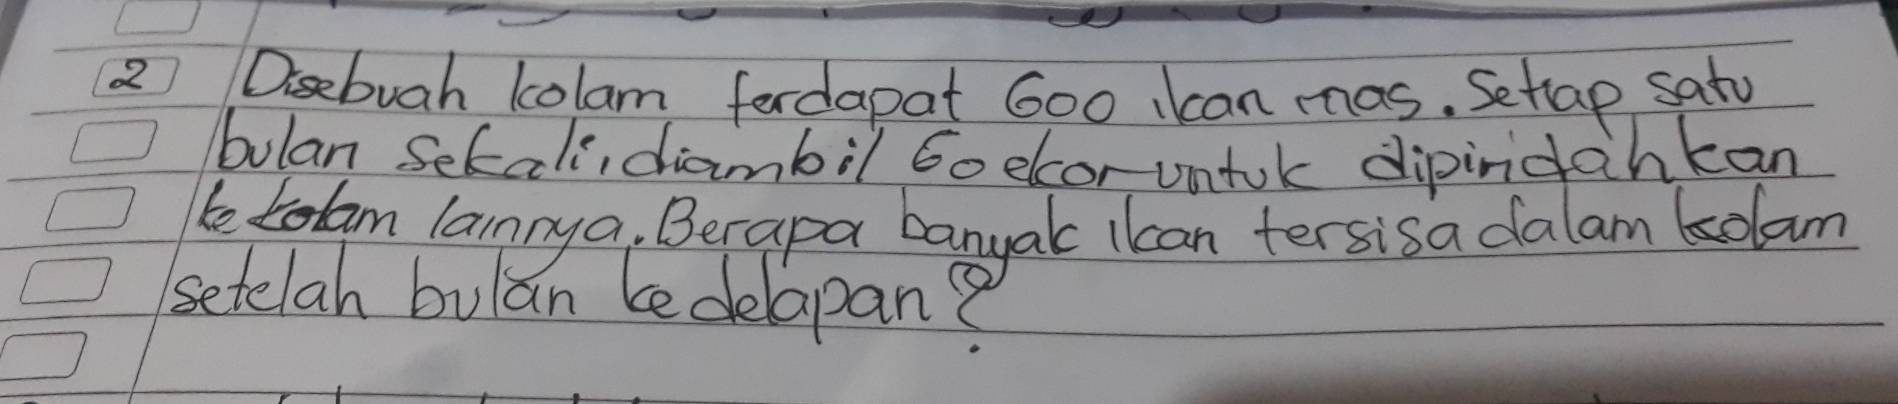 2 Disebuah kolam terdapat 600 ikan mas. Setiap satu
bulan sekali, diambil 60 ekor untuk dipindahkan
ke kolam lainnya. Berapa banyak ikan tersisa dalam kolam
setelah bulan kedelapan?